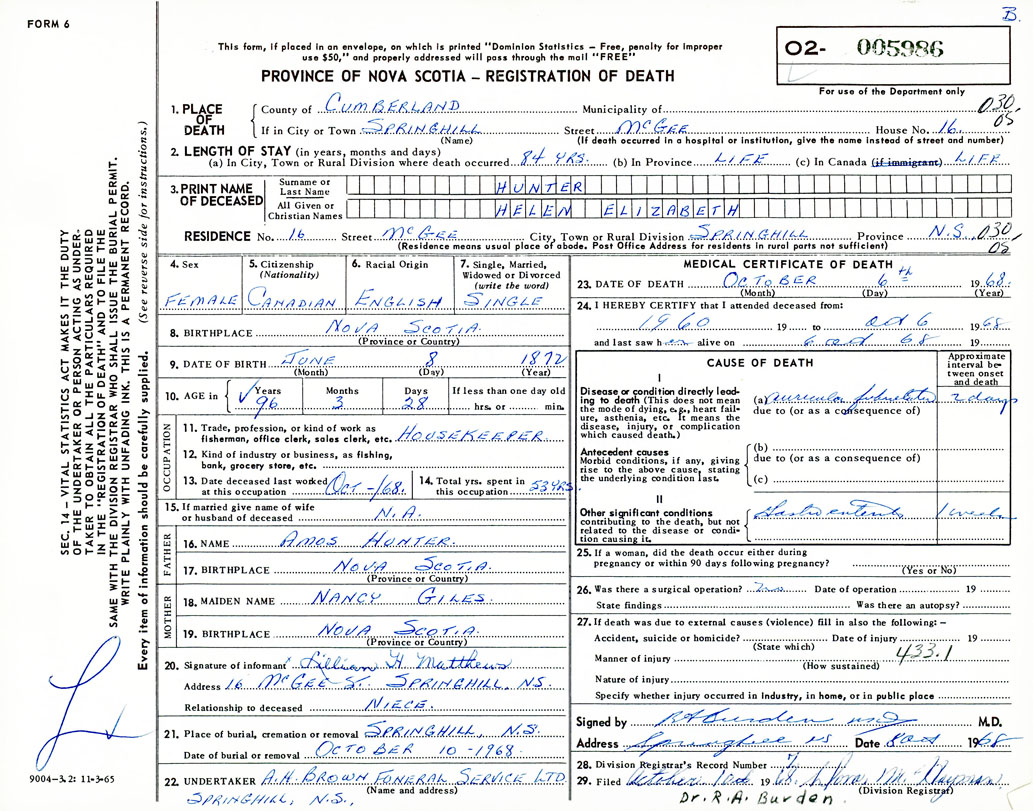 B.
FORM 6
This form, if placed in an envelope, on which is printed "Dominion Statistics – Free, penalty for improper
use $50," and properly addressed will pass through the mail "FREE"
O2- 005986
PROVINCE OF NOVA SCOTIA – REGISTRATION OF DEATH
For use of the Department only
1. PLACE OF DEATH County of CUMBERLAND Municipality of 030,
05
If in City or Town SPRINGHILL Street McGEE House No. 16.
(Name) (If death occurred in a hospital or institution, give the name instead of street and number)
2. LENGTH OF STAY (in years, months and days)
(a) In City, Town or Rural Division where death occurred 84 YRS. (b) In Province LIFE (c) In Canada (if immigrant) LIFE
3. PRINT NAME OF DECEASED Surname or Last Name HUNTER
All Given or Christian Names HELEN ELIZABETH
RESIDENCE No. 16 Street McGEE City, Town or Rural Division SPRINGHILL Province N.S. 030,
05
(Residence means usual place of abode. Post Office Address for residents in rural parts not sufficient)
4. Sex FEMALE
5. Citizenship (Nationality) CANADIAN
6. Racial Origin ENGLISH
7. Single, Married, Widowed or Divorced (write the word) SINGLE
8. BIRTHPLACE NOVA SCOTIA.
(Province or Country)
9. DATE OF BIRTH JUNE 8 1872
(Month) (Day) (Year)
10. AGE in Years 96 Months 3 Days 28 If less than one day old
hrs. or min.
OCCUPATION
11. Trade, profession, or kind of work as
fisherman, office clerk, sales clerk, etc. HOUSEKEEPER
12. Kind of industry or business, as fishing,
bank, grocery store, etc.
13. Date deceased last worked at this occupation OCT -/68.
14. Total yrs. spent in this occupation 53 YRS.
15. If married give name of wife
or husband of deceased N.A.
FATHER
16. NAME AMOS HUNTER.
17. BIRTHPLACE NOVA SCOTIA.
(Province or Country)
MOTHER
18. MAIDEN NAME NANCY GILES.
19. BIRTHPLACE NOVA SCOTIA.
(Province or Country)
20. Signature of informant Lillian H Matthews
Address 16 McGEE ST. SPRINGHILL, NS.
Relationship to deceased NIECE.
21. Place of burial, cremation or removal SPRINGHILL, N.S.
Date of burial or removal OCTOBER 10 -1968.
22. UNDERTAKER A.H. BROWN FUNERAL SERVICE LTD.
(Name and address)
SPRINGHILL, N.S.,
MEDICAL CERTIFICATE OF DEATH
23. DATE OF DEATH OCTOBER 6th 1968.
(Month) (Day) (Year)
24. I HEREBY CERTIFY that I attended deceased from:
1960 19 to Oct 6 1968
and last saw her alive on 6 Oct 68 19
CAUSE OF DEATH
Approximate interval between onset and death
I
Disease or condition directly leading to death (This does not mean the mode of dying, e.g., heart failure, asthenia, etc. It means the disease, injury, or complication which caused death.)
(a) auricular fibrillation 2 days
due to (or as a consequence of)
Antecedent causes
Morbid conditions, if any, giving rise to the above cause, stating the underlying condition last.
(b)
due to (or as a consequence of)
(c)
II
Other significant conditions
contributing to the death, but not related to the disease or condition causing it.
1 week
25. If a woman, did the death occur either during
pregnancy or within 90 days following pregnancy?
(Yes or No)
26. Was there a surgical operation? no Date of operation 19
State findings Was there an autopsy?
27. If death was due to external causes (violence) fill in also the following: –
Accident, suicide or homicide? Date of injury 19
(State which)
433.1
Manner of injury
(How sustained)
Nature of injury
Specify whether injury occurred in Industry, in home, or in public place
Signed by RA Burden M.D.
Address Springhill NS Date 8 Oct 1968
28. Division Registrar's Record Number
29. Filed October 10th 1968.
(Division Registrar)
Dr. R.A. Burden.
SEC. 14 – VITAL STATISTICS ACT MAKES IT THE DUTY
OF THE UNDERTAKER OR PERSON ACTING AS UNDER-
TAKER TO OBTAIN ALL THE PARTICULARS REQUIRED
IN THE "REGISTRATION OF DEATH" AND TO FILE THE
SAME WITH THE DIVISION REGISTRAR WHO SHALL ISSUE THE BURIAL PERMIT.
WRITE PLAINLY WITH UNFADING INK. THIS IS A PERMANENT RECORD.
Every item of information should be carefully supplied. (See reverse side for instructions.)
9004–3.2: 11-3-65